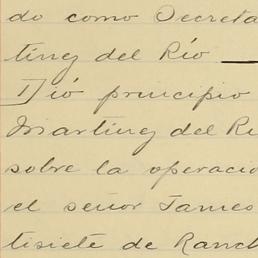 do como Secreta
tinez del Río
Dió principio
Martinez del Rí
sobre la operacio
el señor James
tisiete de Ranch